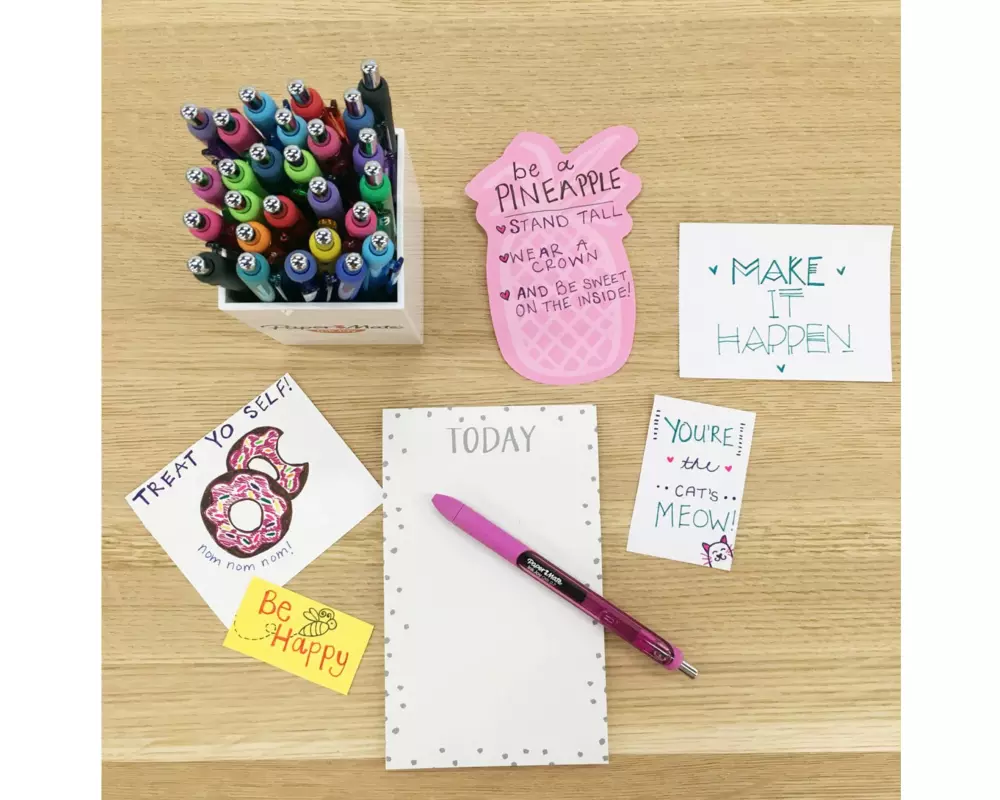 be a
PINEAPPLE
STAND TALL
WEAR A
CROWN
AND BE SWEET
ON THE INSIDE!
MAKE
IT
HAPPEN
Paper Mate
TREAT YO SELF!
nom nom nom!
TODAY
YOU'RE
the
CAT'S
MEOW!
Paper Mate
Be
Happy